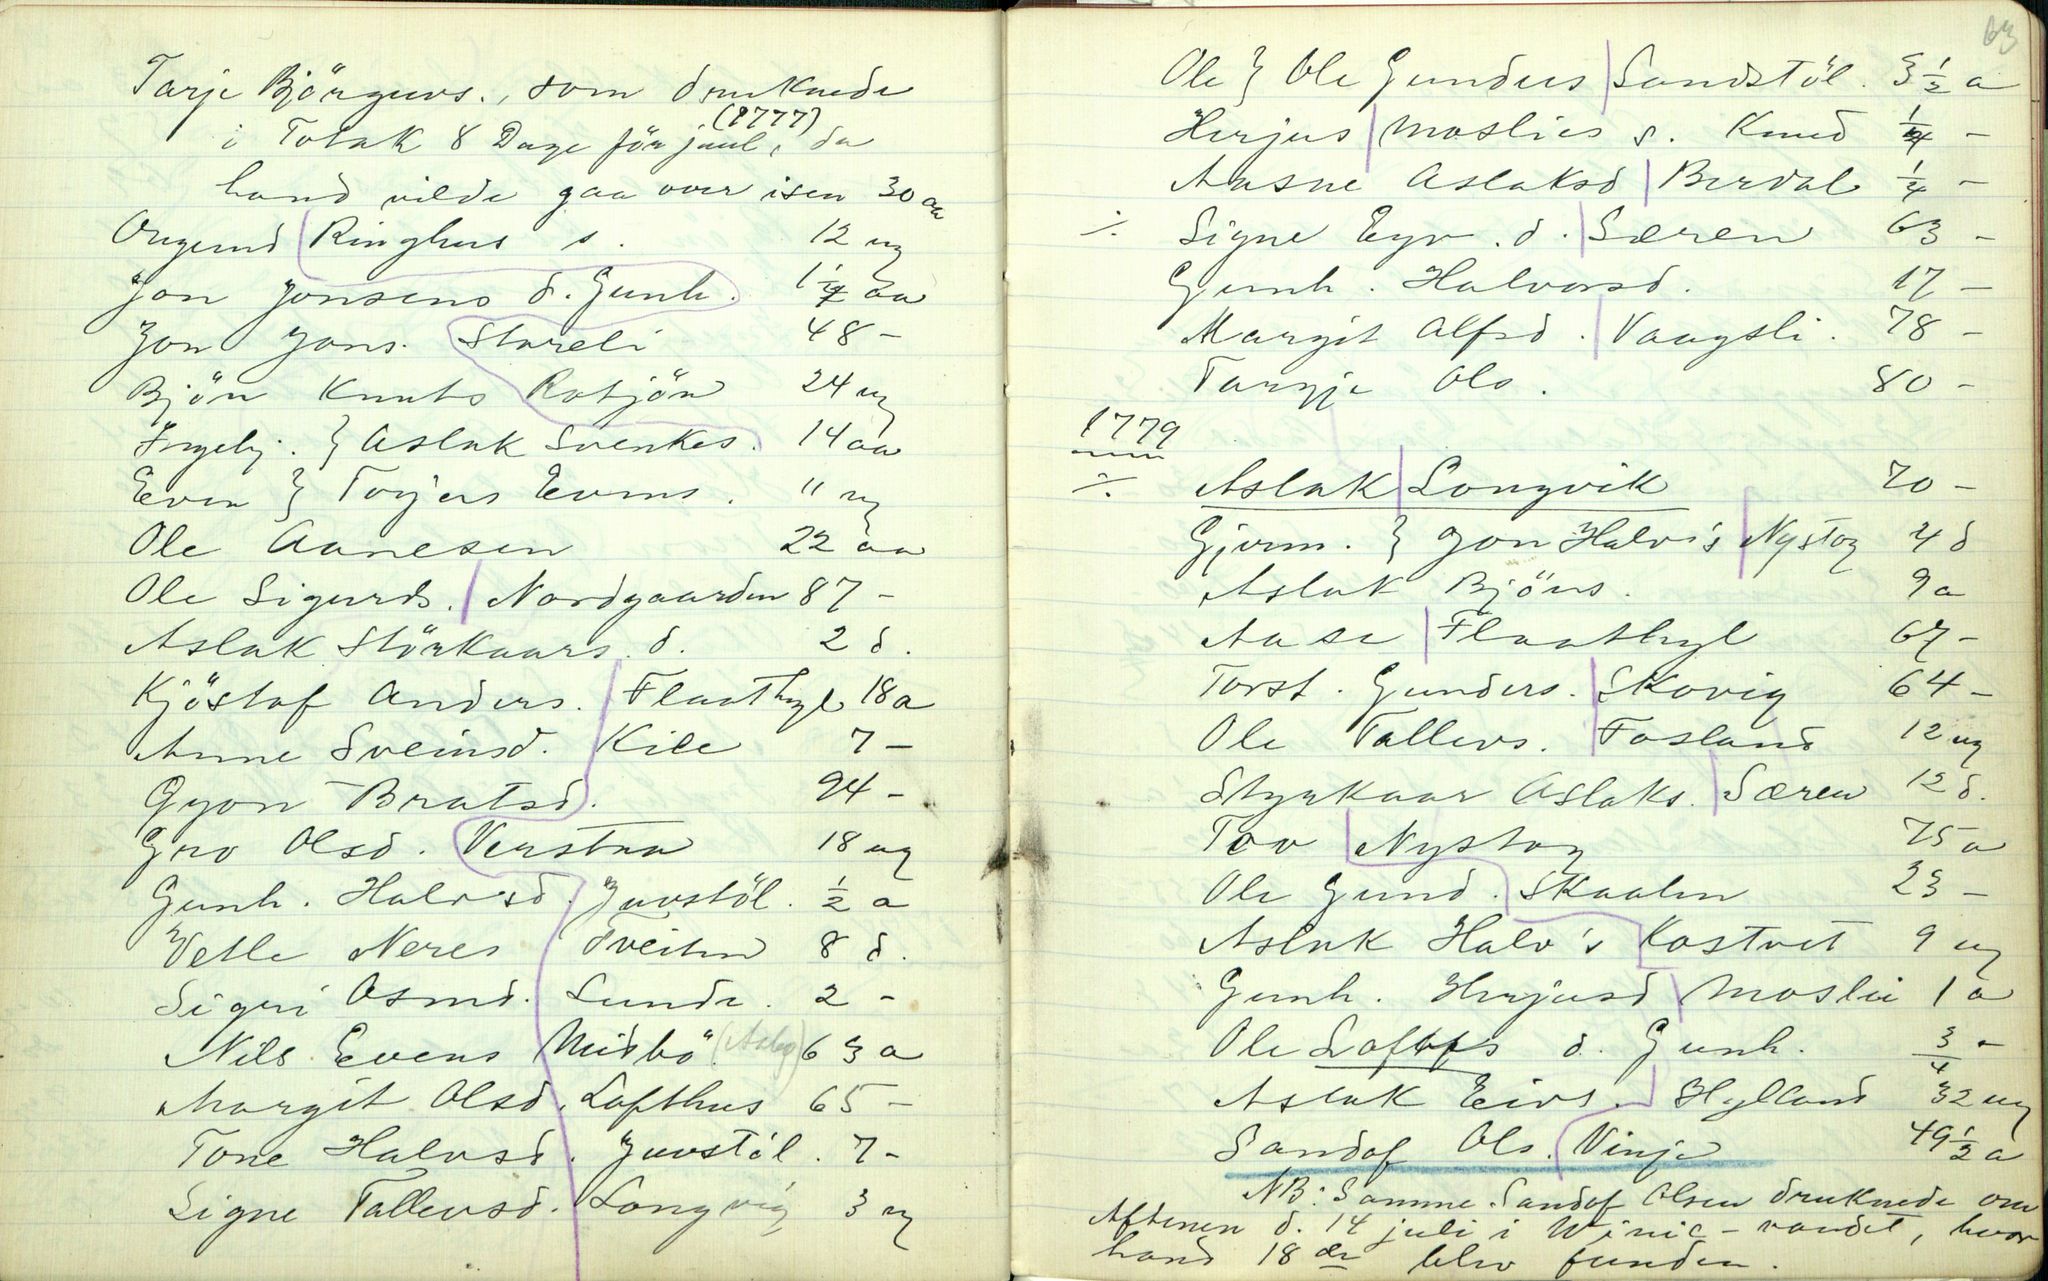 Tarje Björguvs., som druknede
i Totak 8 Dage för juul, (1777) da
hand vilde gaa over isen 30 aa
Ougund Ringhus s. 12 ug
Jon Jonsens d. Gunh. 1 1/4 aa
Jon Jons. Storeli 48 -
Bjön Knuts Rotjön 24 ug
Ingebj. } Aslak Svenkes. 14 aa
Even } Torjers Evens. " ug
Ole Aanesen 22 aa
Ole Sigurds. Nordgaarden 87 -
Aslak Störkaars. d. 2 d.
Kjöstof Anders. Flaathyl 18 a
Anne Sveinsd. Kile 7 -
Gyon Bratsd. 94 -
Gro Olsd. Verstra 18 ug
Gunh. Halvsd. Juvstöl. 1/2 a
Vetle Neres Tveiten 8 d.
Sigri Asmd. Lunde. 2 -
Nils Evens Midbö (Asbg) 63 a
Margit Olsd. Lofthus 65 -
Tone Halvsd. Juvstöl. 7 -
Signe Tallevsd. Longvig 3 ug
63
Ole } Ole Gunders Sandstöl. 3 1/2 a
Herjus Moslies s. Knud 1/4 -
Aasne Aslaksd Berdal 1/4 -
./. Signe Eyv. d. Særen 63 -
Gunh. Halvorsd. 17 -
Margit Alfsd. Vaagsli. 78 -
Targje Ols. 80 -
1779
./. Aslak Longvik 70 -
Gjerm. } Jon Halv's Nystog 4 d
Aslak Bjöns. 9 a
Aase Flaathyl 67 -
Torst. Gunders. Skovig 64 -
Ole Tallevs. Fosland 12 ug
Styrkaar Aslaks. Særen 12 d.
Tov Nystog 75 a
Ole Gund. Skaalen 23 -
Aslak Halv's Kostvet 9 ug
Gunh. Herjusd Moslie 1 a
Ole Lofts d. Gunh. 3/4 -
Aslak Eivs. Hylland 32 ug
Sandof Ols. Vinje 49 1/2 a
NB: Samme Sandof Olsen druknede om
Aftenen d. 14 juli i Winie-vandet, hvor
hand 18 de blev funden.